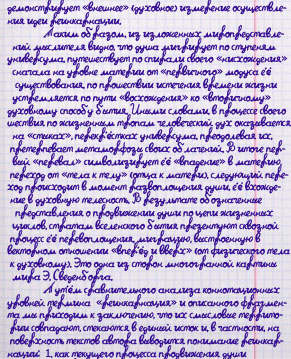 демонстрирует «внешнее» (духовное) измерение осуществле-
ния идеи реинкарнации.
Таким образом, из изложенных миропредставле-
ний мыслителя видно, что душа мигрирует по ступеням
универсума, путешествует по спирали своего «нисхождения»
сначала на уровне материи от «первичного» модуса её
существования, по прошествии истечения времени жизни
устремляется по пути «восхождения» ко «вторичному»
духовному способу бытия. Иными словами, в процессе своего
шествия по жизненным тропам человеческий дух оказывается
на «стыках», перекрёстках универсума, преодолевая их,
претерпевает метаморфозы своих обличений. В итоге пер-
вый «перевал» символизирует её «впадение» в материю,
переход от «тела к телу» (отца к матери), следующий пере-
ход происходит в момент развоплощения души, её вхожде-
ние в духовную телесность. В результате обозначенные
представления о продвижении души по цепи жизненных
циклов, стратам вселенского бытия презентуют сквозной
процесс её перевоплощения, миграцию, выстроенную в
векторном отношении «вперёд и вверх» (от физического тела
к духовному). Это одна из сторон многогранной картины
мира Э. Сведенборга.
Путём сравнительного анализа коннотационных
уровней термина «реинкарнация» и описанного фрагмен-
та мы приходим к заключению, что их смысловые террито-
рии совпадают, стекаются в единый исток и, в частности, на
поверхность текстов автора выводится понимание реинкар-
нации: 1, как текущего процесса продвижения души